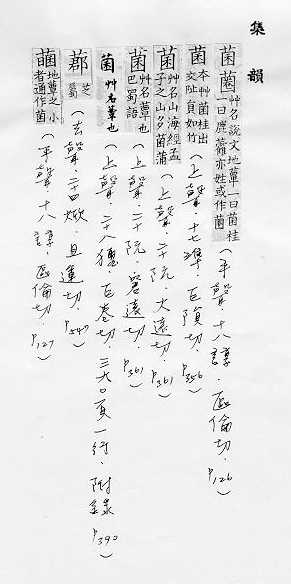 集韻
菌䕑 艸名說文地蕈一曰菌桂一曰鹿䕑亦姓或作菌(平聲.十八諄.區倫切.P126)
菌 本艸菌桂出交阯員如竹(上聲.十七準.巨隕切.P356)
菌 艸名山海經孟子之山多菌蒲(上聲.二十阮.大遠切.P361)
菌 艸名蕈也巴蜀語(上聲.二十阮.窘遠切.P361)
菌 艸名蕈也(上聲.二十八獮.巨卷切.三九〇頁一行.附錄P390)
芝菌(去聲.二十四焮.且運切.P547)
地蕈之小者通作菌(平聲.十八諄.區倫切.P127)